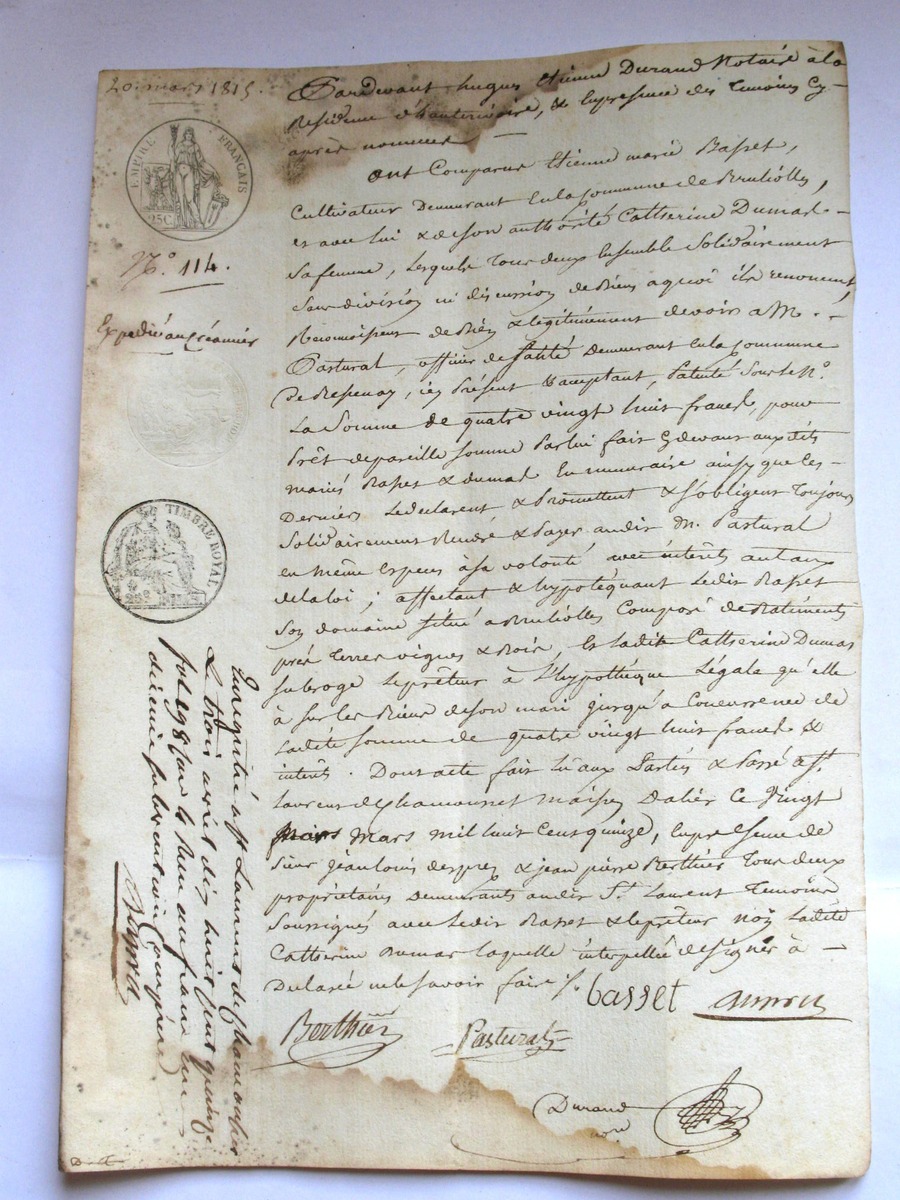 20 mars 1815.
EMPIRE FRANÇAIS
25C.
N.º 114.
Expedié au Créancier
TIMBRE ROYAL
Pardevant hugues Etienne Durand Notaire à la
Residence d'hauterivoire, & En presence des temoins Cy
après nommés —
ont Comparus Etienne marie Basset,
Cultivateur Demeurant En la Commune de Bruliolles,
et avec lui & de son authorité Catherine Dumas –
Sa femme, lesquels tous deux Ensemble Solidairement
Sans division ni discussion de Biens aquoi ils renoncent,
Reconnoissent de Bien & legitimement devoir a M. –
Pastural, officier de santé Demeurant En la Commune
De Bessenay, icy Présent & acceptant, Patenté Sous le N.º
La Somme de quatre vingt huit francs, pour
Prêt de pareille somme Par lui fait Cy devant aux dits
mariés Basset & dumas En numeraire ainsy que les –
Derniers Le declarent & Promettent & S'obligent toujours
Solidairement Rendre & Payer audit M. Pastural
en même Especes à sa volonté avec intérêts au taux
de la loi ; affectant & hypotéquant Ledit Basset
Son domaine situé a Brulliolles Composé de Batiments
prés terres vignes & Bois, Et Ladite Catherine Dumas
subroge Le prêteur à L'hypothéque Légale qu'elle
à sur les Biens de son mari jusqu'a Concurrence de
Ladite somme de quatre vingt huit francs &
interêts. Dont acte fait Lu aux Parties & Passé a S.t
Laurent de Chamousset maison Dalier Ce Vingt
mars mil huit Cent quinze, En presence de
Sieur jean louis desprez & jean pierre Berthier tous deux
propriétaires Demeurants audit S.t Laurent temoins
Soussignés avec Ledit Basset & le prêteur non Ladite
Catherine Dumas laquelle interpellée de signer à –
Declaré ne le Savoir faire /.
basset
Berthier
Pastural
Durand
no.re
Enregistré à S.t Laurent de Chamousset
Le trois avril dix huit Cent quinze
fol. 198
dixième subvention Comprise